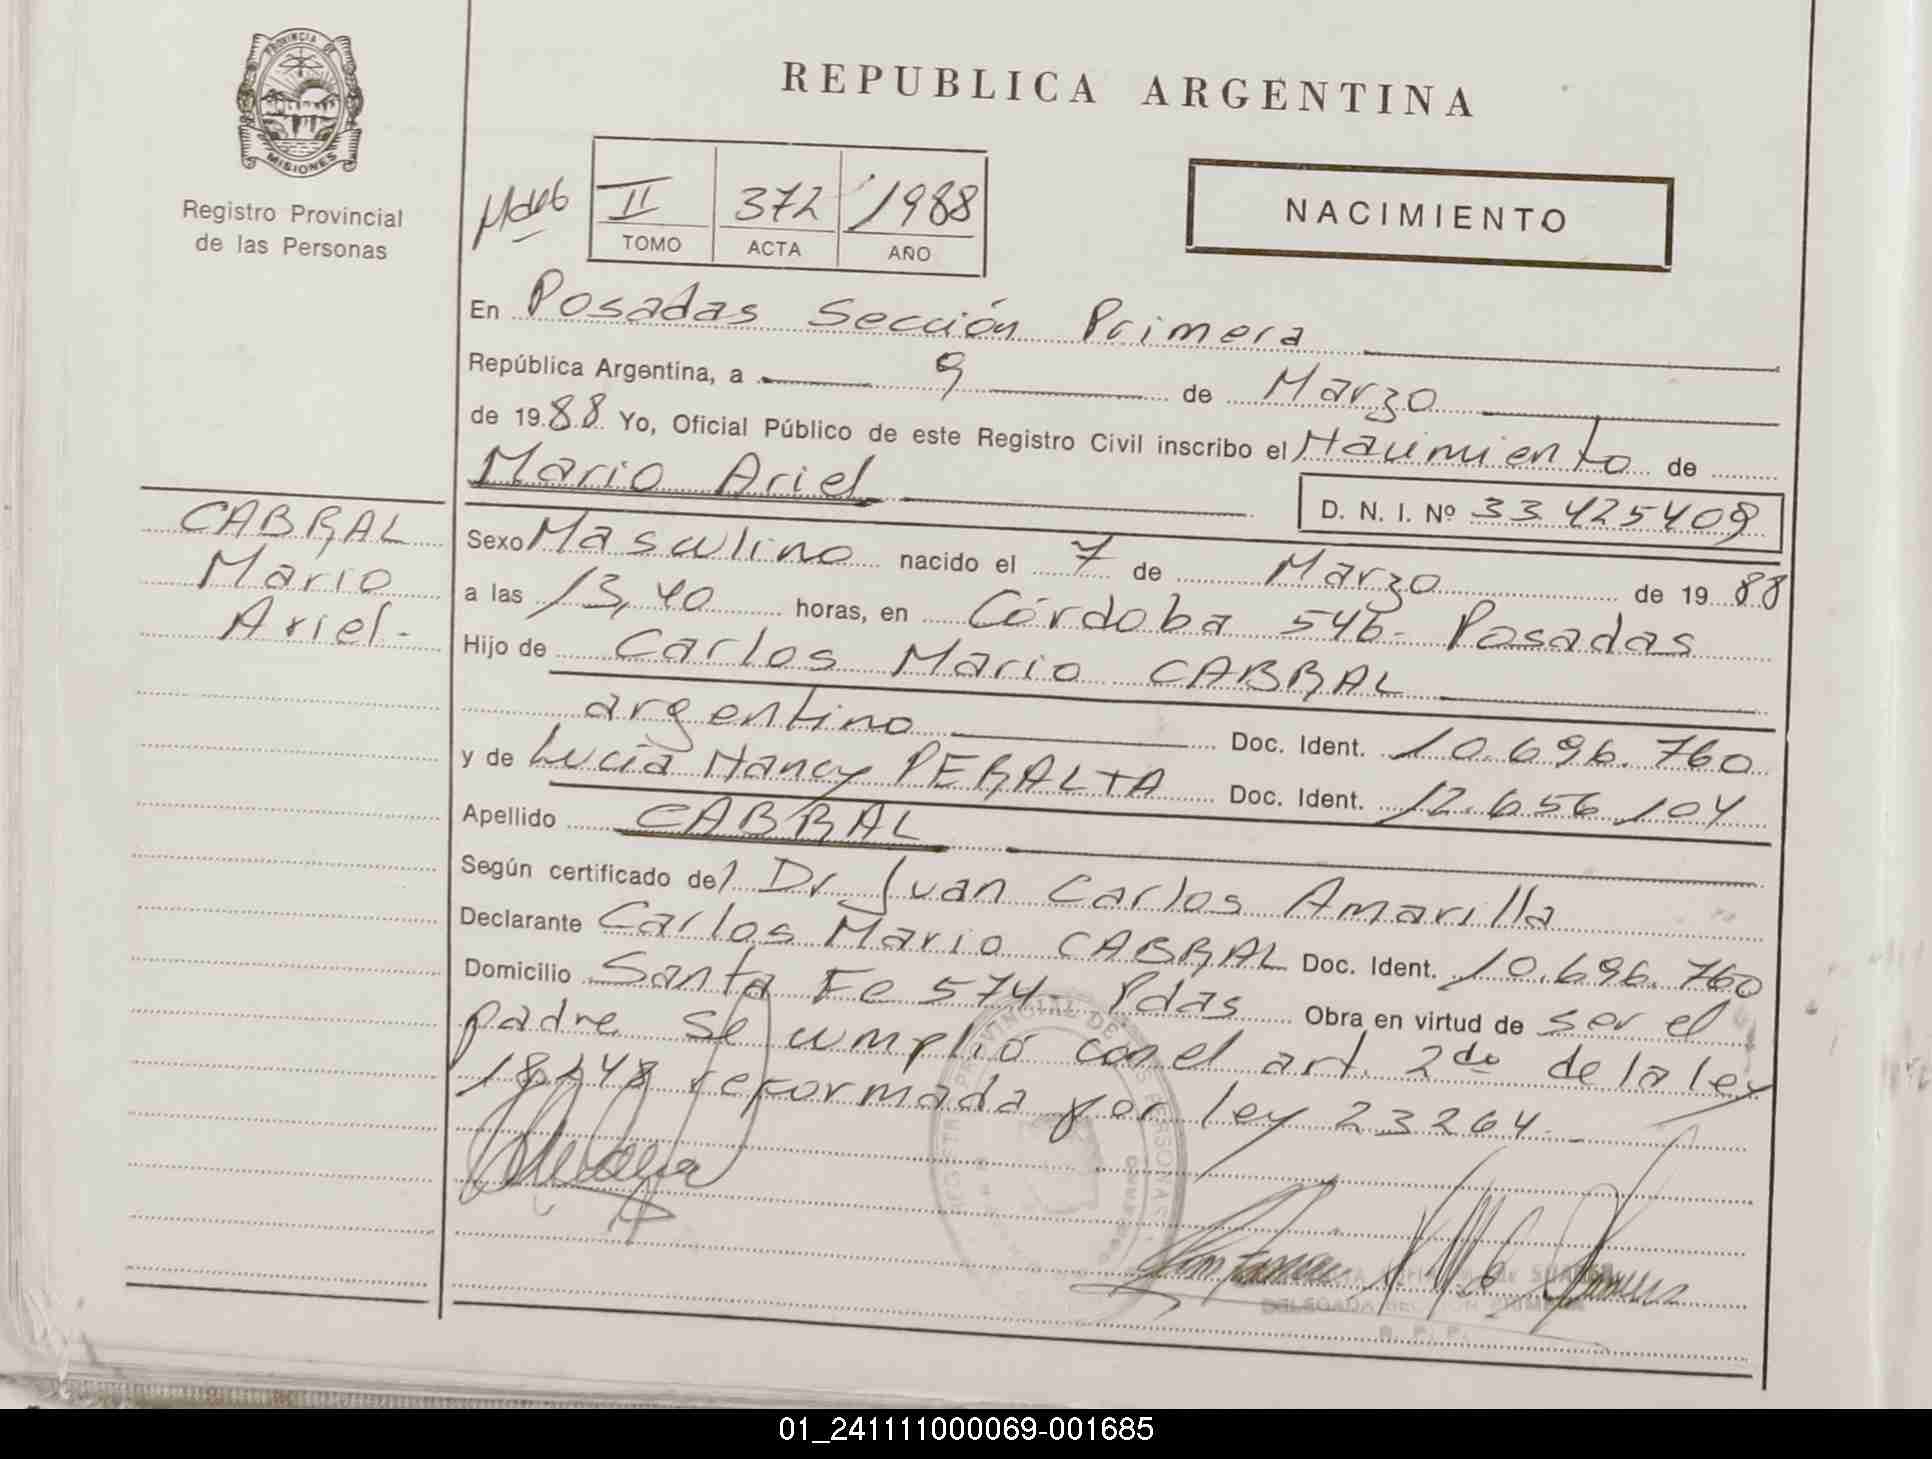 PROVINCIA DE
MISIONES
Registro Provincial
de las Personas
REPUBLICA ARGENTINA
II 372 1988
TOMO ACTA AÑO
NACIMIENTO
En Posadas Sección Primera
República Argentina, a 9 de Marzo
de 1988 Yo, Oficial Público de este Registro Civil inscribo el Nacimiento de
Mario Ariel
D. N. I. Nº 33425409
CABRAL
Mario
Ariel.-
Sexo Masculino nacido el 7 de Marzo de 1988
a las 13,40 horas, en Córdoba 546- Posadas
Hijo de Carlos Mario CABRAL
argentino Doc. Ident. 10.696.760
y de Lucía Nancy PERALTA Doc. Ident. 12.656.104
Apellido CABRAL
Según certificado del Dr Juan Carlos Amarilla
Declarante Carlos Mario CABRAL Doc. Ident. 10.696.760
Domicilio Santa Fe 574- Pdas Obra en virtud de ser el
padre se cumplió con el art. 2do de la ley
18248 reformada por ley 23264.-
REGISTRO PROVINCIAL DE LAS PERSONAS
DELEGADA SECCION PRIMERA
R. P. P.
01_241111000069-001685